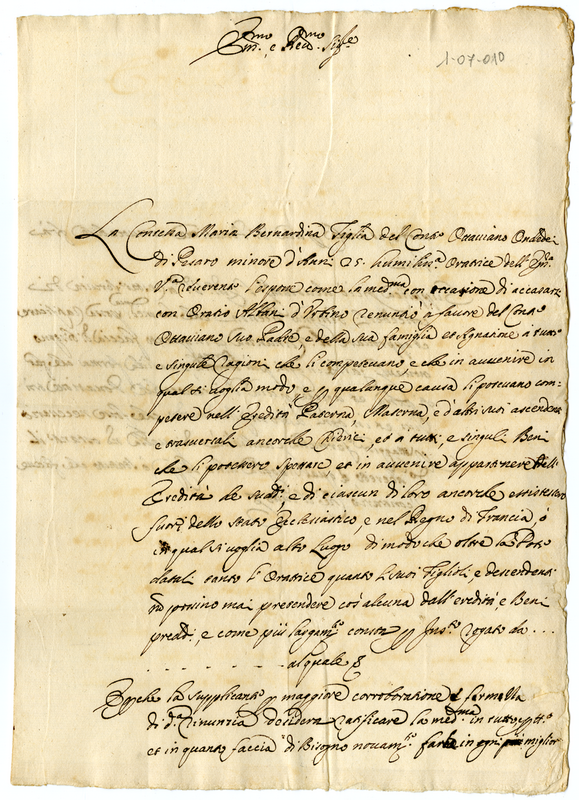 Em.mo e Rev.mo Sig.re
1-07-010
La Contessa Maria Bernardina figlia del Conte Ottaviano Ondedei
di Pesaro minore d'Anni 25. humiliss.a Oratrice dell'Em.za
V.a reverente l'espone come la med.ma con occasione di accasarsi
con Oratio Albani d'Urbino renuntiò à favore del Conte
Ottaviano suo Padre e della sua famiglia et Agnatione à tutte
e singule ragioni che li competevano e che in avvenire in
qual si voglia modo, e p qualunque causa li potevano com-
petere nell'Eredità Paterna, Materna, e d'altri suoi ascendenti
e trasversali ancorche Chierici, et à tutti, e singuli Beni
che li potessero spettare et in avvenire appartenere dell'
Eredità de sudi., e di ciascun di loro ancorche esistessero
fuori dello Stato Ecclesiastico, e nel Regno di Francia, ò
in qual si voglia altro luogo di modo che oltre la Dote
datali tanto l'Oratrice quanto li suoi figlioli, e descendenti
no possino mai pretendere cos'alcuna dall'eredità e Beni
pred.i, e come più largam.te consta p Inst.o rogato da . . .
. . . . . . . al quale
E perche la supplicante p maggiore corroboratione e fermezza
di d.a renuntia desidera ratificare la med.ma in tutto, e p tt.o
et in quanto faccia di bisogno novam.te farla in ogni più miglior